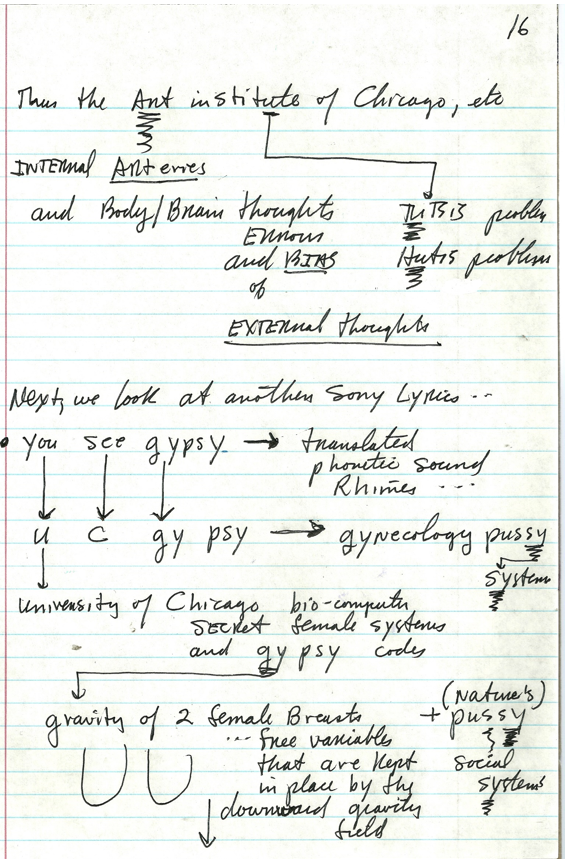 16
Thus the Ant institute of Chicago, etc
INTERNAL ANTeries
and Body/Brain thoughts TUTSIS problem
ERRORS
and BIAS HUTIS problem
of
EXTERNAL thoughts
Next, we look at another Song Lyrics ...
• you see gypsy → translated
phonetic sound
Rhimes ...
u C gy psy → gynecology pussy
system
university of Chicago bio-computer
SECRET female systems
and gy psy codes
(Nature's)
gravity of 2 female Breasts + pussy
... free variables
that are kept social
in place by the systems
downward gravity
field